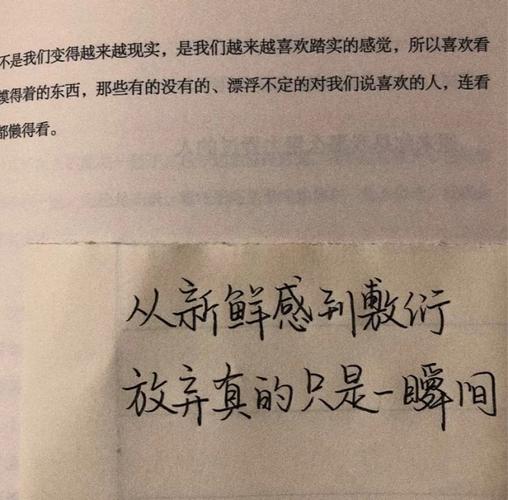 不是我们变得越来越现实，是我们越来越喜欢踏实的感觉，所以喜欢看
摸得着的东西，那些有的没有的、漂浮不定的对我们说喜欢的人，连看
都懒得看。
从新鲜感到敷衍
放弃真的只是一瞬间